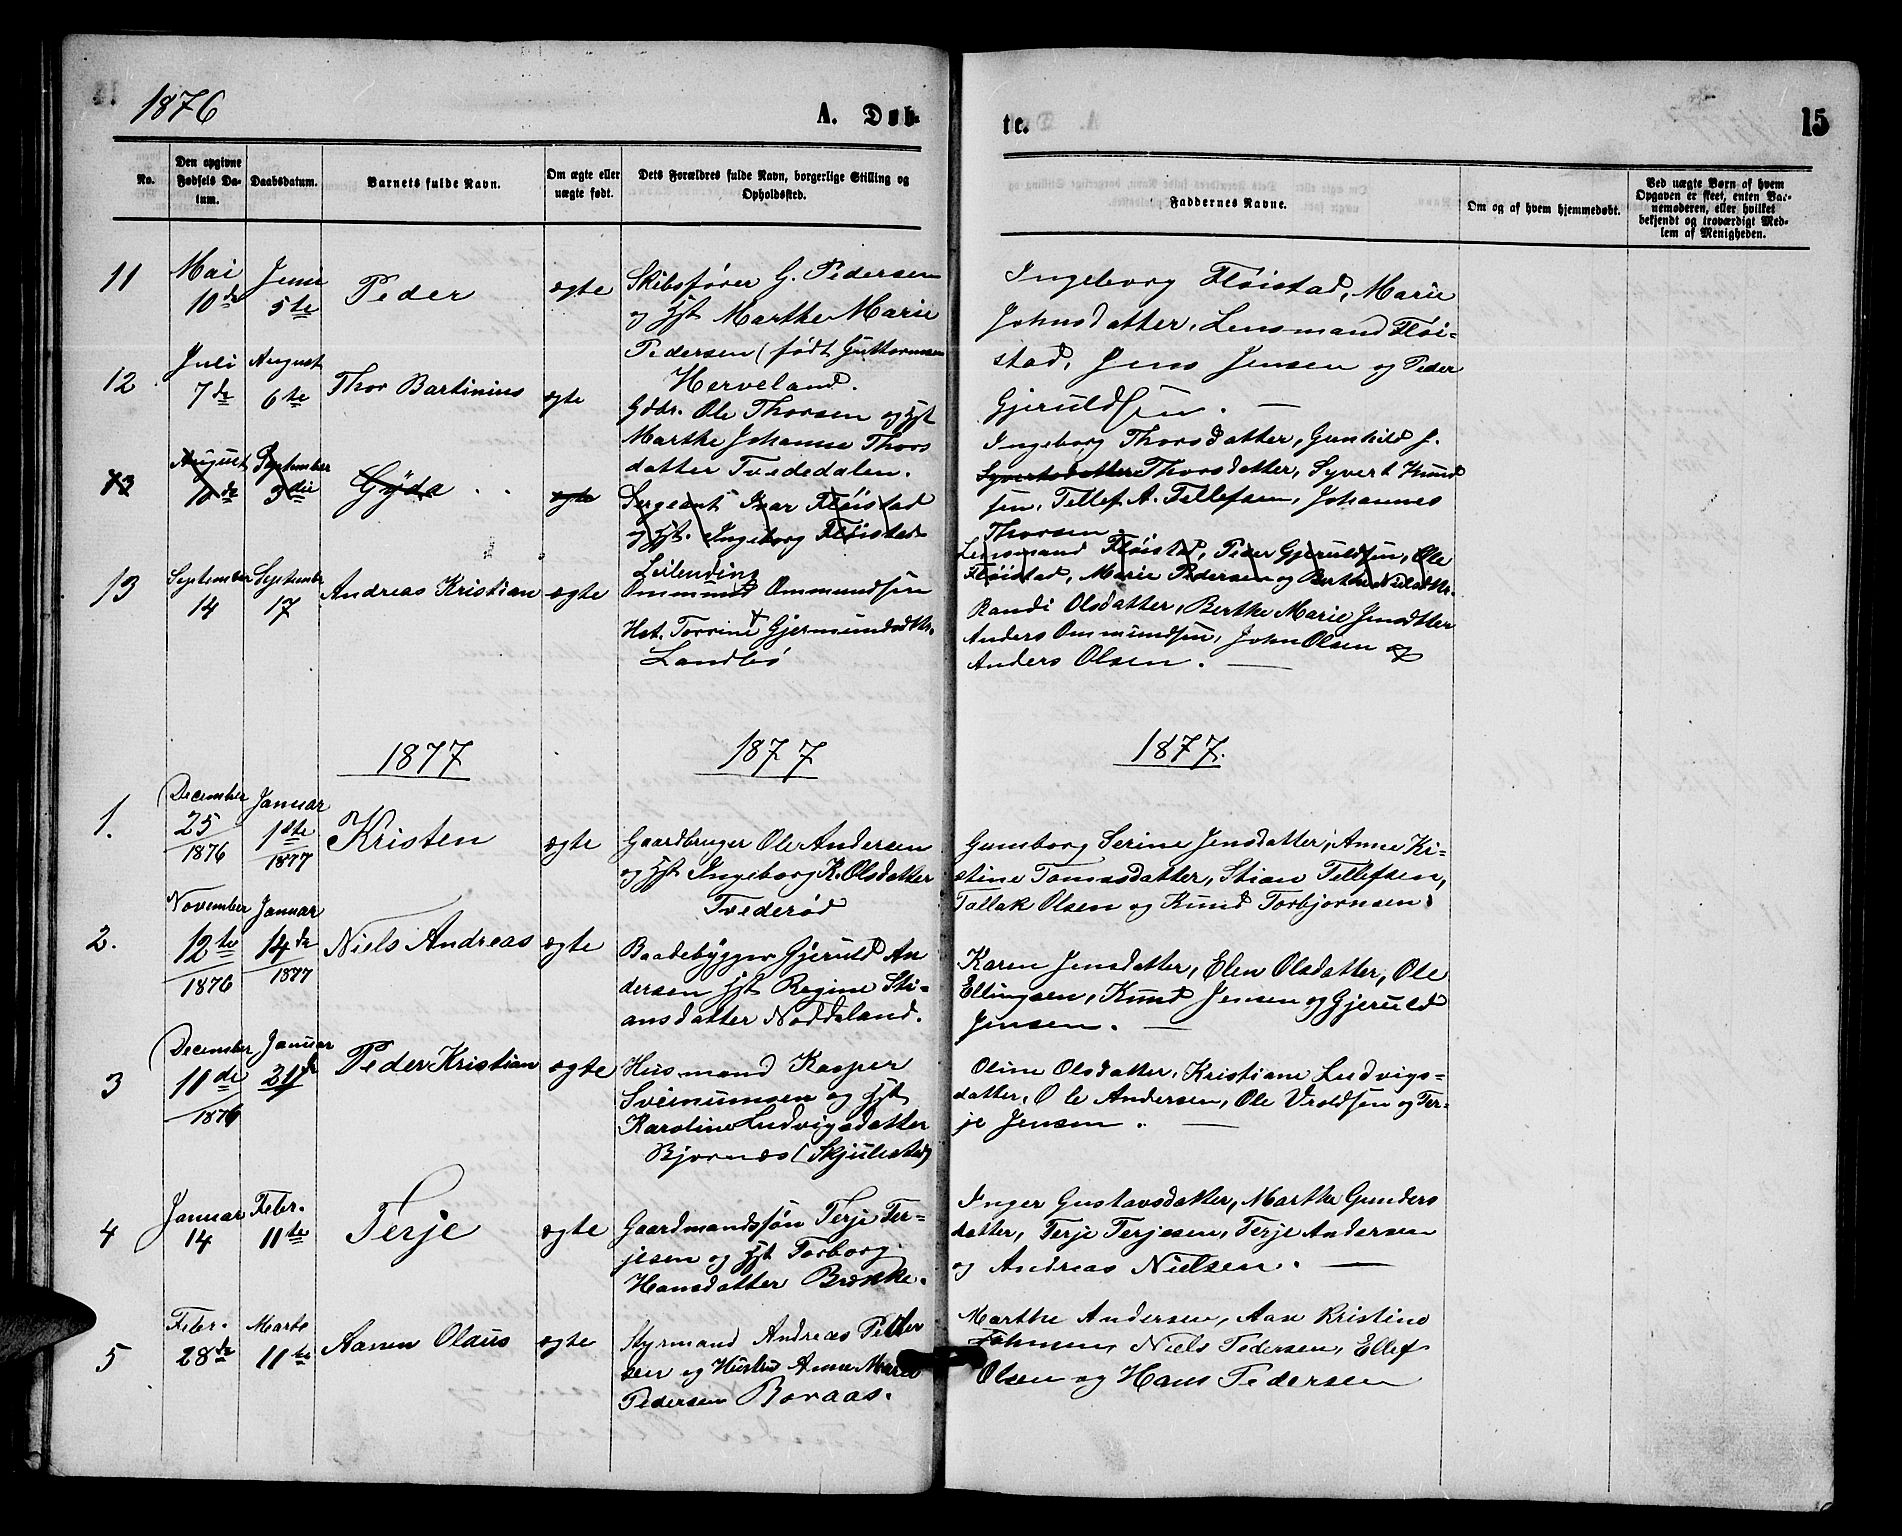 1876
A. Døb-
te.
15
No.
Den opgivne Fødsels Da-tum.
Daabsdatum.
Barnets fulde Navn.
Om ægte eller uægte født.
Dets Forældres fulde Navn, borgerlige Stilling og Opholdssted.
Faddernes Navne.
Om og af hvem hjemmedøbt.
Ved uægte Børn af hvem Opgaven er skeet, enten Bar-nemoderen, eller hvilket bekjendt og troværdigt Med-lem af Menigheden.
11
Mai
10de
Juni
5te
Peder
ægte
Skibsfører G. Pedersen
og Hst Marthe Marie
Pedersen (født Guttormsen
Herveland.
Ingeborg Fløistad, Marie
Johnsdatter, Lensmand Fløi-
stad, Jens Jensen og Peder
Gjeruldsen.
12
Juli
7de
August
6te
Thor Bartinius
ægte
Gdbr. Ole Thorsen og Hst
Marthe Johanne Thors
datter Tvededalen.
Ingeborg Thorsdatter, Gunhild J.
Syvertsdatter Thorsdatter, Syvert Knud
sen, Tellef A. Tellefsen, Johannes
Thorsen
13
August
10de
September
3die
Gyda
ægte
Sergeant Ivar Fløistad
og Hst. Ingeborg Fløistad
Lensmand Fløistad, Peder Gjeruldsen, Ole
Fløistad, Marie Pedersen og Berthe Nielsdtr.
13
September
14
September
17
Andreas Kristian
ægte
Leilending
Ommund Ommundsen
Hst. Torrine Gjermundsdtr.
Landbø
Randi Olsdatter, Berthe Marie Jensdtter
Anders Ommundsen, John Olsen og
Anders Olsen.
1877
1877
1877.
1.
December
25
1876
Januar
1ste
1877
Kristen
ægte
Gaardbruger Ole Andersen
og Hst Ingeborg K. Olsdatter
Tvederød
Gunborg Serine Jensdatter, Anne Ki-
stine Tomasdatter, Stian Tellefsen,
Tallak Olsen og Knud Torbjornsen.
2.
November
12te
1876
Januar
14de
1877
Niels Andreas
ægte
Baadebygger Gjeruld An
dersen Hst Regine Sti-
ansdatter Noddeland.
Karen Jensdatter, Elen Olsdatter, Ole
Ellingsen, Knud Jensen og Gjeruld
Jensen.
3
December
11de
1876
Januar
21de
Peder Kristian
ægte
Husmand Kasper
Sveinumsen og Hst
Karoline Ludvigsdatter
Bjornæs (Skjulestad)
Oline Olsdatter, Kristiane Ludvigs-
datter, Ole Andersen, Ole Vroldsen og Ter-
je Jensen.
4
Januar
14
Febr.
11te
Terje
ægte
Gaardmandssøn Terje Ter-
jesen og Hst Torborg
Hansdatter Brække.
Inger Gustavsdatter, Marthe Gunders
datter, Terje Terjesen, Terje Andersen
og Andreas Nielsen.
5
Febr.
28de
Marts
11te
Aanen Olaus
ægte
Styrmand Andreas Petter
sen og Hustru Anne Marie
Pedersen Boraas.
Marthe Andersen, Aase Kristine
Niels Pedersen, Ellef
Olsen og Hans Pedersen